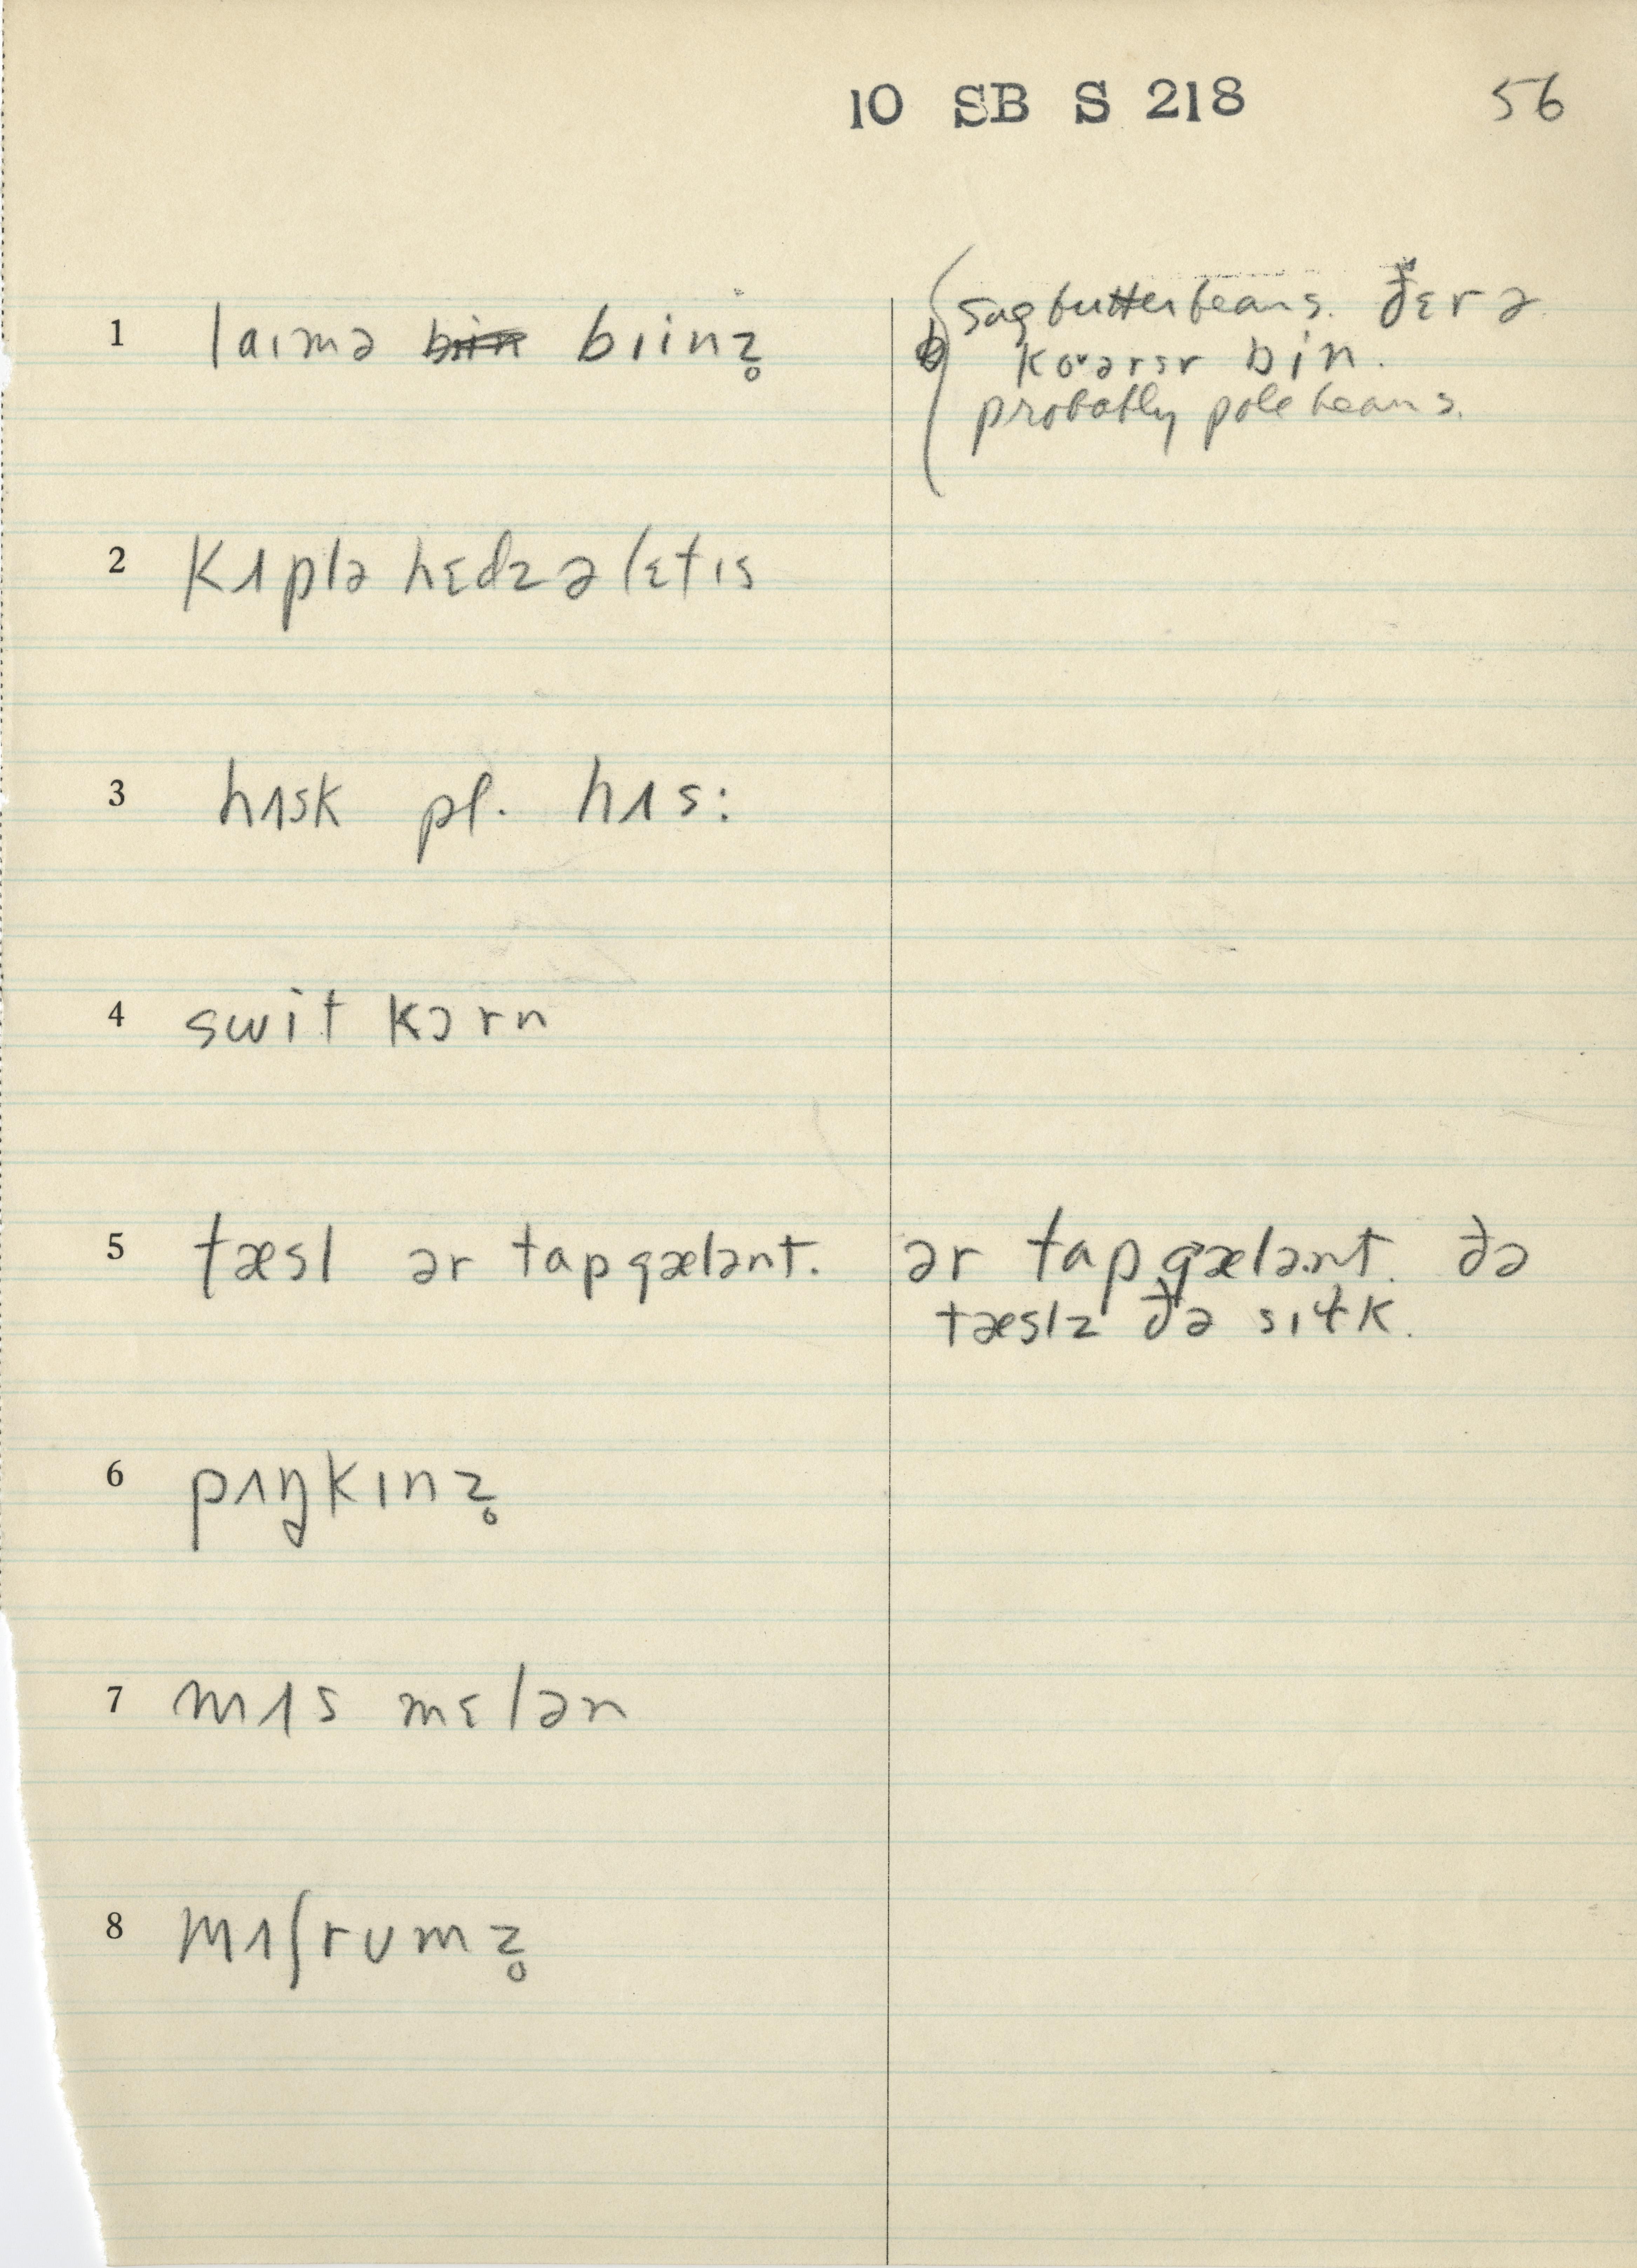 10 SB S 218 56
1 laɪmə biin̥z̥ sug butterbeans. ðɛr ə
koᵛərsr bin.
probably pole beans.
2 kʌplə hɛdz ə lɛtɪs
3 hʌsk pl. hʌs:
4 swit kɔrn
5 tæsl ər tap gælənt. ər tap gælənt. ðə
tæslz ðə sɪɫk.
6 pʌŋkɪnz̥
7 mʌs mɛlən
8 mʌʃrumz̥